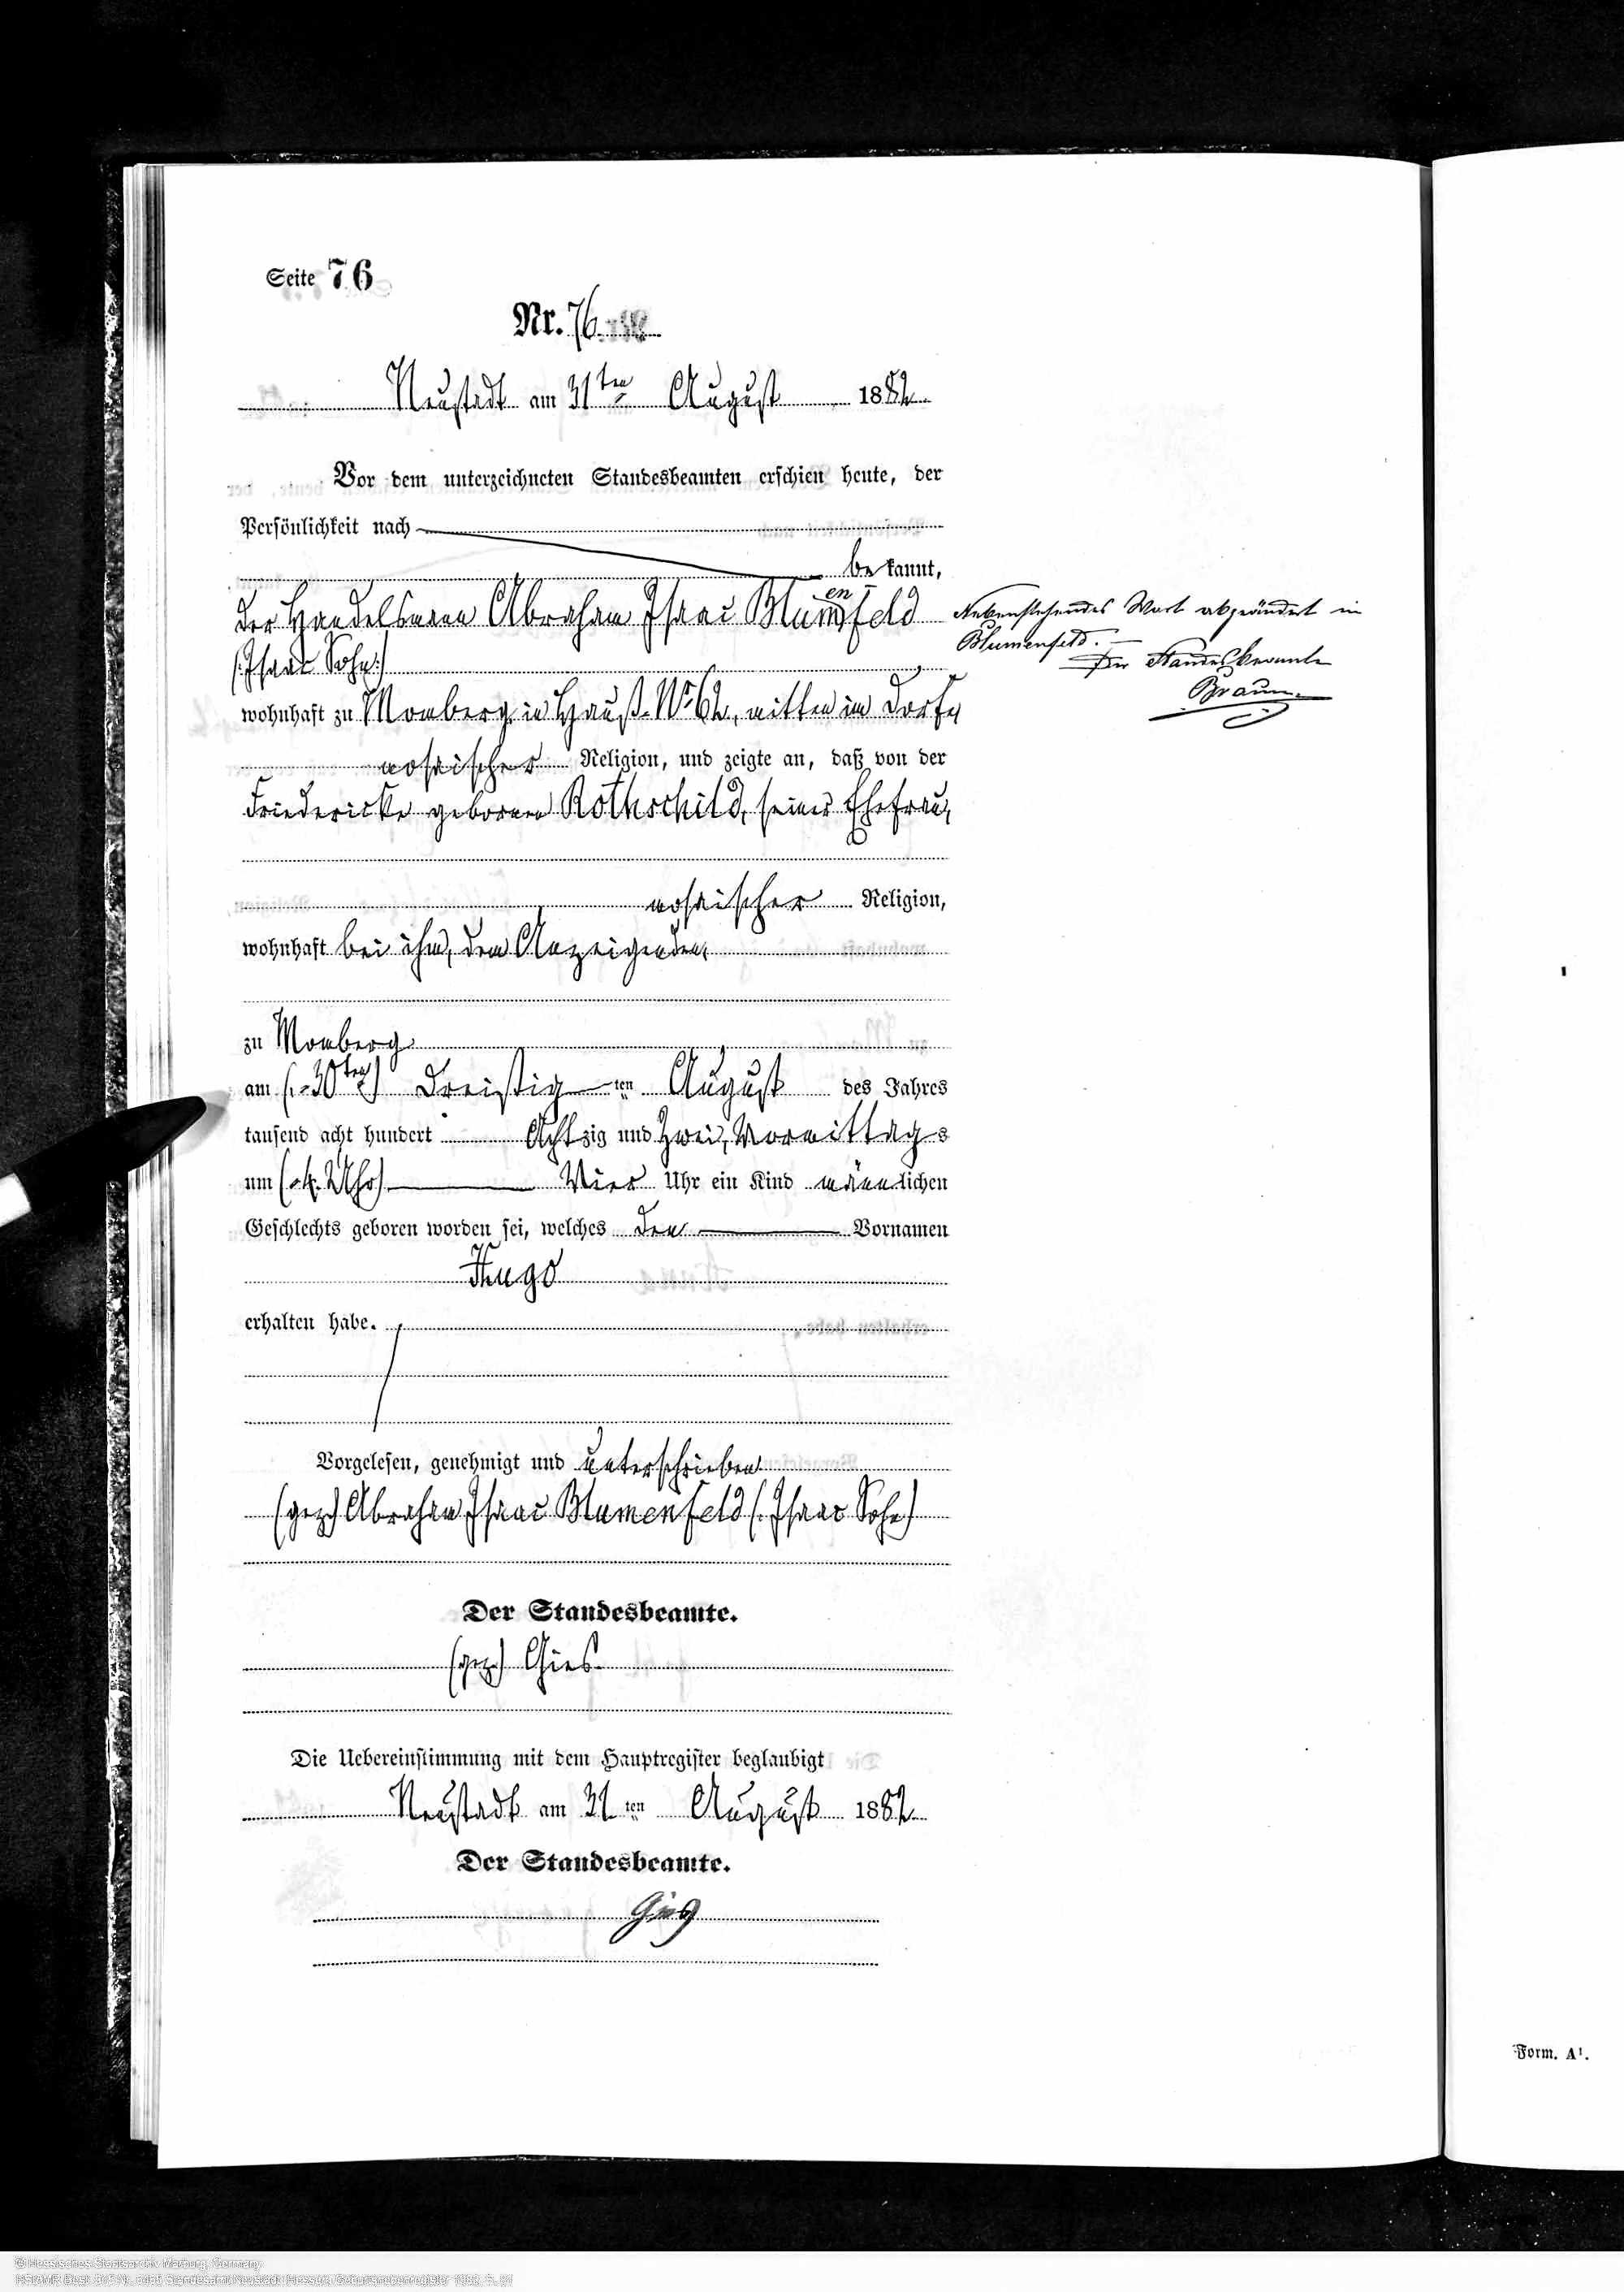 Seite 76
Nr. 76
Neustadt am 31ten August 1882
Vor dem unterzeichneten Standesbeamten erschien heute, der
Persönlichkeit nach
bekannt,
der Handelsmann Abraham Isaac Blumenfeld
(:Isaac Sohn:)
Nebenstehendes Wort abgeändert in
Blumenfeld. —
Der Standesbeamte
Braun.
wohnhaft zu Momberg in Hauß-No 62, mitten im Dorfe,
mosaischer Religion, und zeigte an, daß von der
Friedericke geborenen Rothschild, seiner Ehefrau,
mosaischer Religion,
wohnhaft bei ihm, dem Anzeigenden,
zu Momberg
am (:30ten:) Dreißigten August des Jahres
tausend acht hundert Achtzig und Zwei, Vormittags
um (:4. Uhr) Vier Uhr ein Kind männlichen
Geschlechts geboren worden sei, welches den Vornamen
Hugo
erhalten habe.
Vorgelesen, genehmigt und unterschrieben
(gez) Abraham Isaac Blumenfeld (:Isaac Sohn)
Der Standesbeamte.
(gez) Gies
Die Uebereinstimmung mit dem Hauptregister beglaubigt
Neustadt am 31ten August 1882
Der Standesbeamte.
Gies
Form. A1.
© Hessisches Staatsarchiv Marburg, Germany